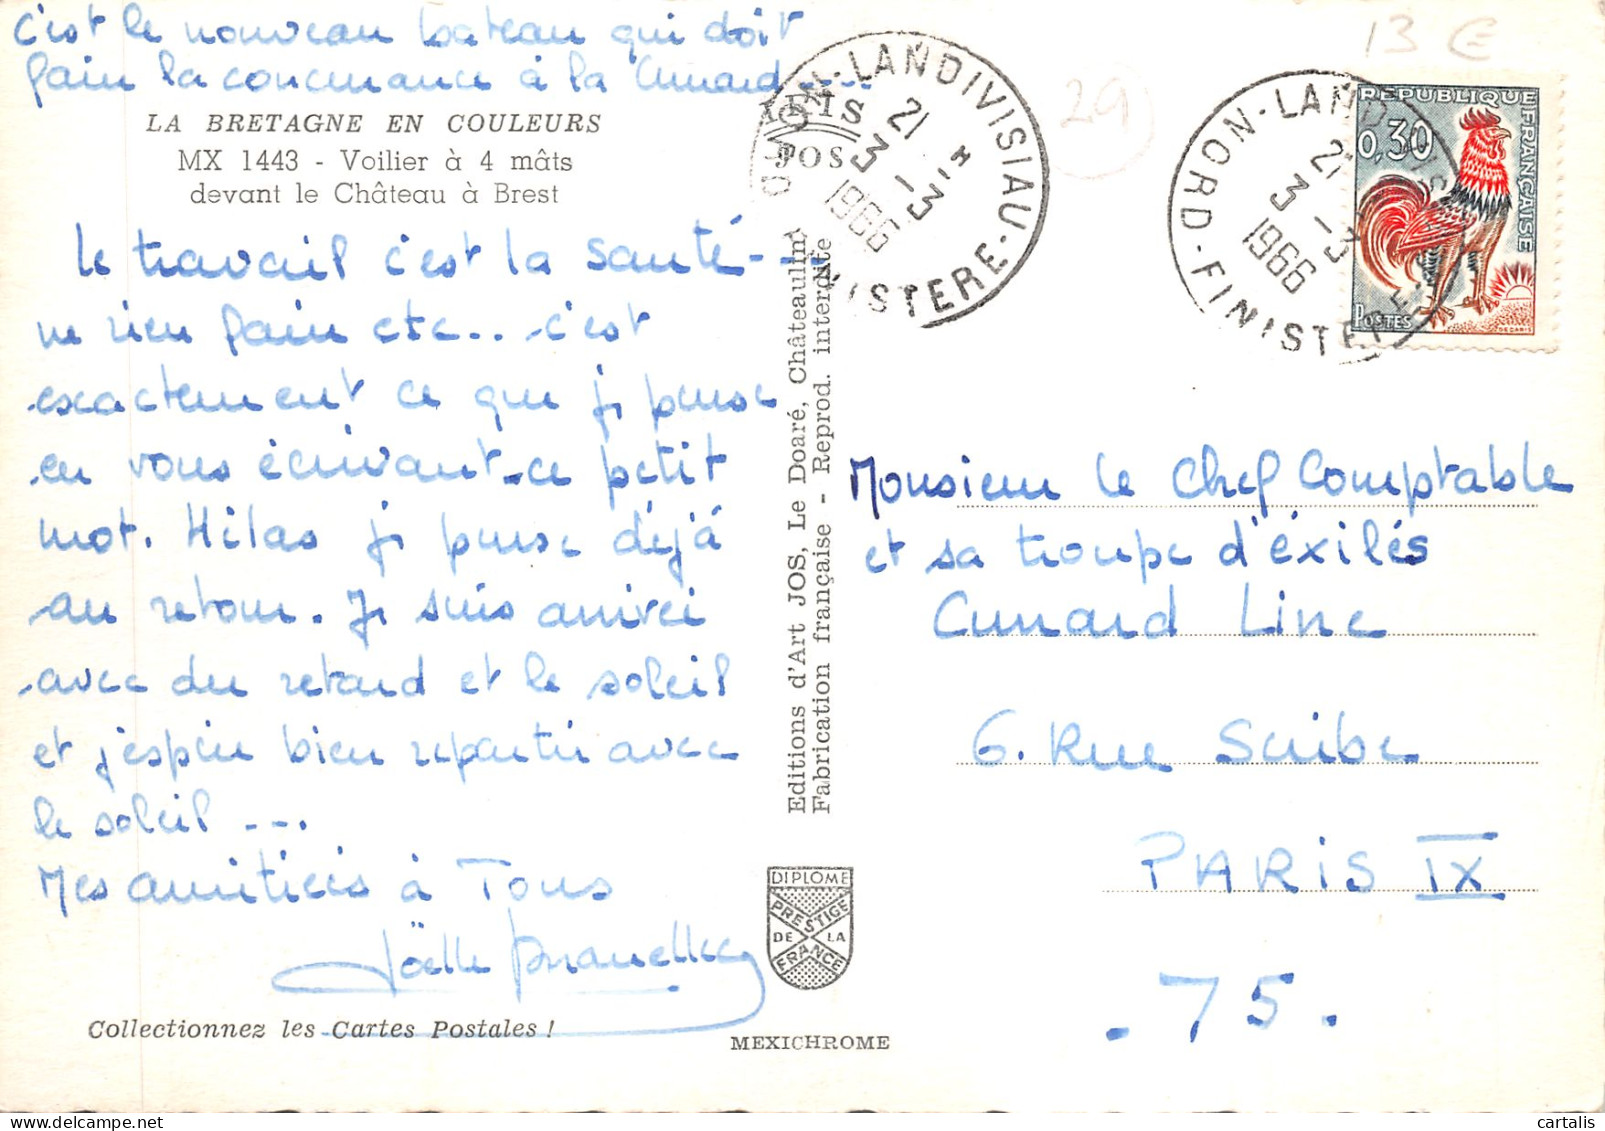 c'est le nouveau bateau qui doit
faire la concurrence à la Cunard....
LA BRETAGNE EN COULEURS
MX 1443 - Voilier à 4 mâts
devant le Château à Brest
Le travail c'est la santé ---
ne rien faire etc... c'est
exactement ce que je pense
en vous écrivant ce petit
mot. Hélas je pense déjà
au retour. Je suis arrivée
avec du retard et le soleil
et j'espère bien repartir avec
le soleil ---.
Mes amitiés à Tous
Joëlle
Collectionnez les Cartes Postales !
Editions d'Art JOS, Le Doaré, Châteaulin
Fabrication française - Reprod. interdite
DIPLOME
PRESTIGE
DE LA
FRANCE
MEXICHROME
PLOUGOURVEST
13 €
29
LANDIVISIAU
21 H
3 - 3
1966
FINISTERE
ORD
LANDIVISIAU
21
3 - 3
1966
FINISTERE
REPUBLIQUE
FRANÇAISE
0,30
POSTES
DECARIS
Monsieur le Chef Comptable
et sa troupe d'éxilés
Cunard Line
6. Rue Scribe
PARIS IX
. 75 .
cartalis